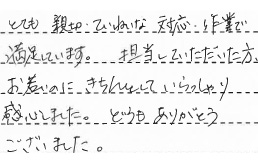 とても 親切・ていねいな 対応・作業で
満足しています。 担当していただいた方、
お若いのに きちんとして いらっしゃり
感心しました。 どうも ありがとう
ございました。